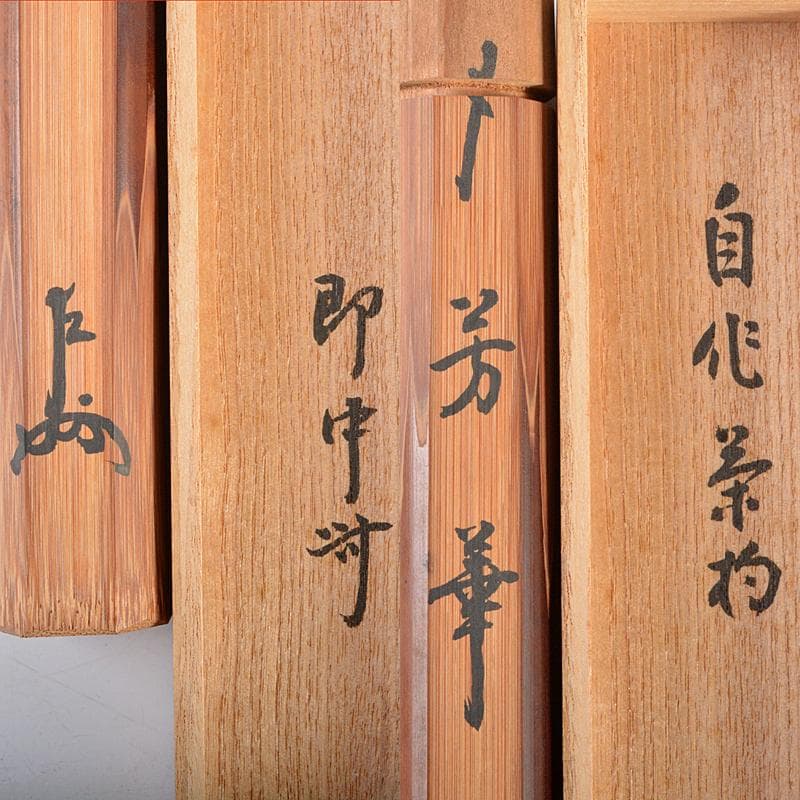 自作茶杓
芳華
即中斎